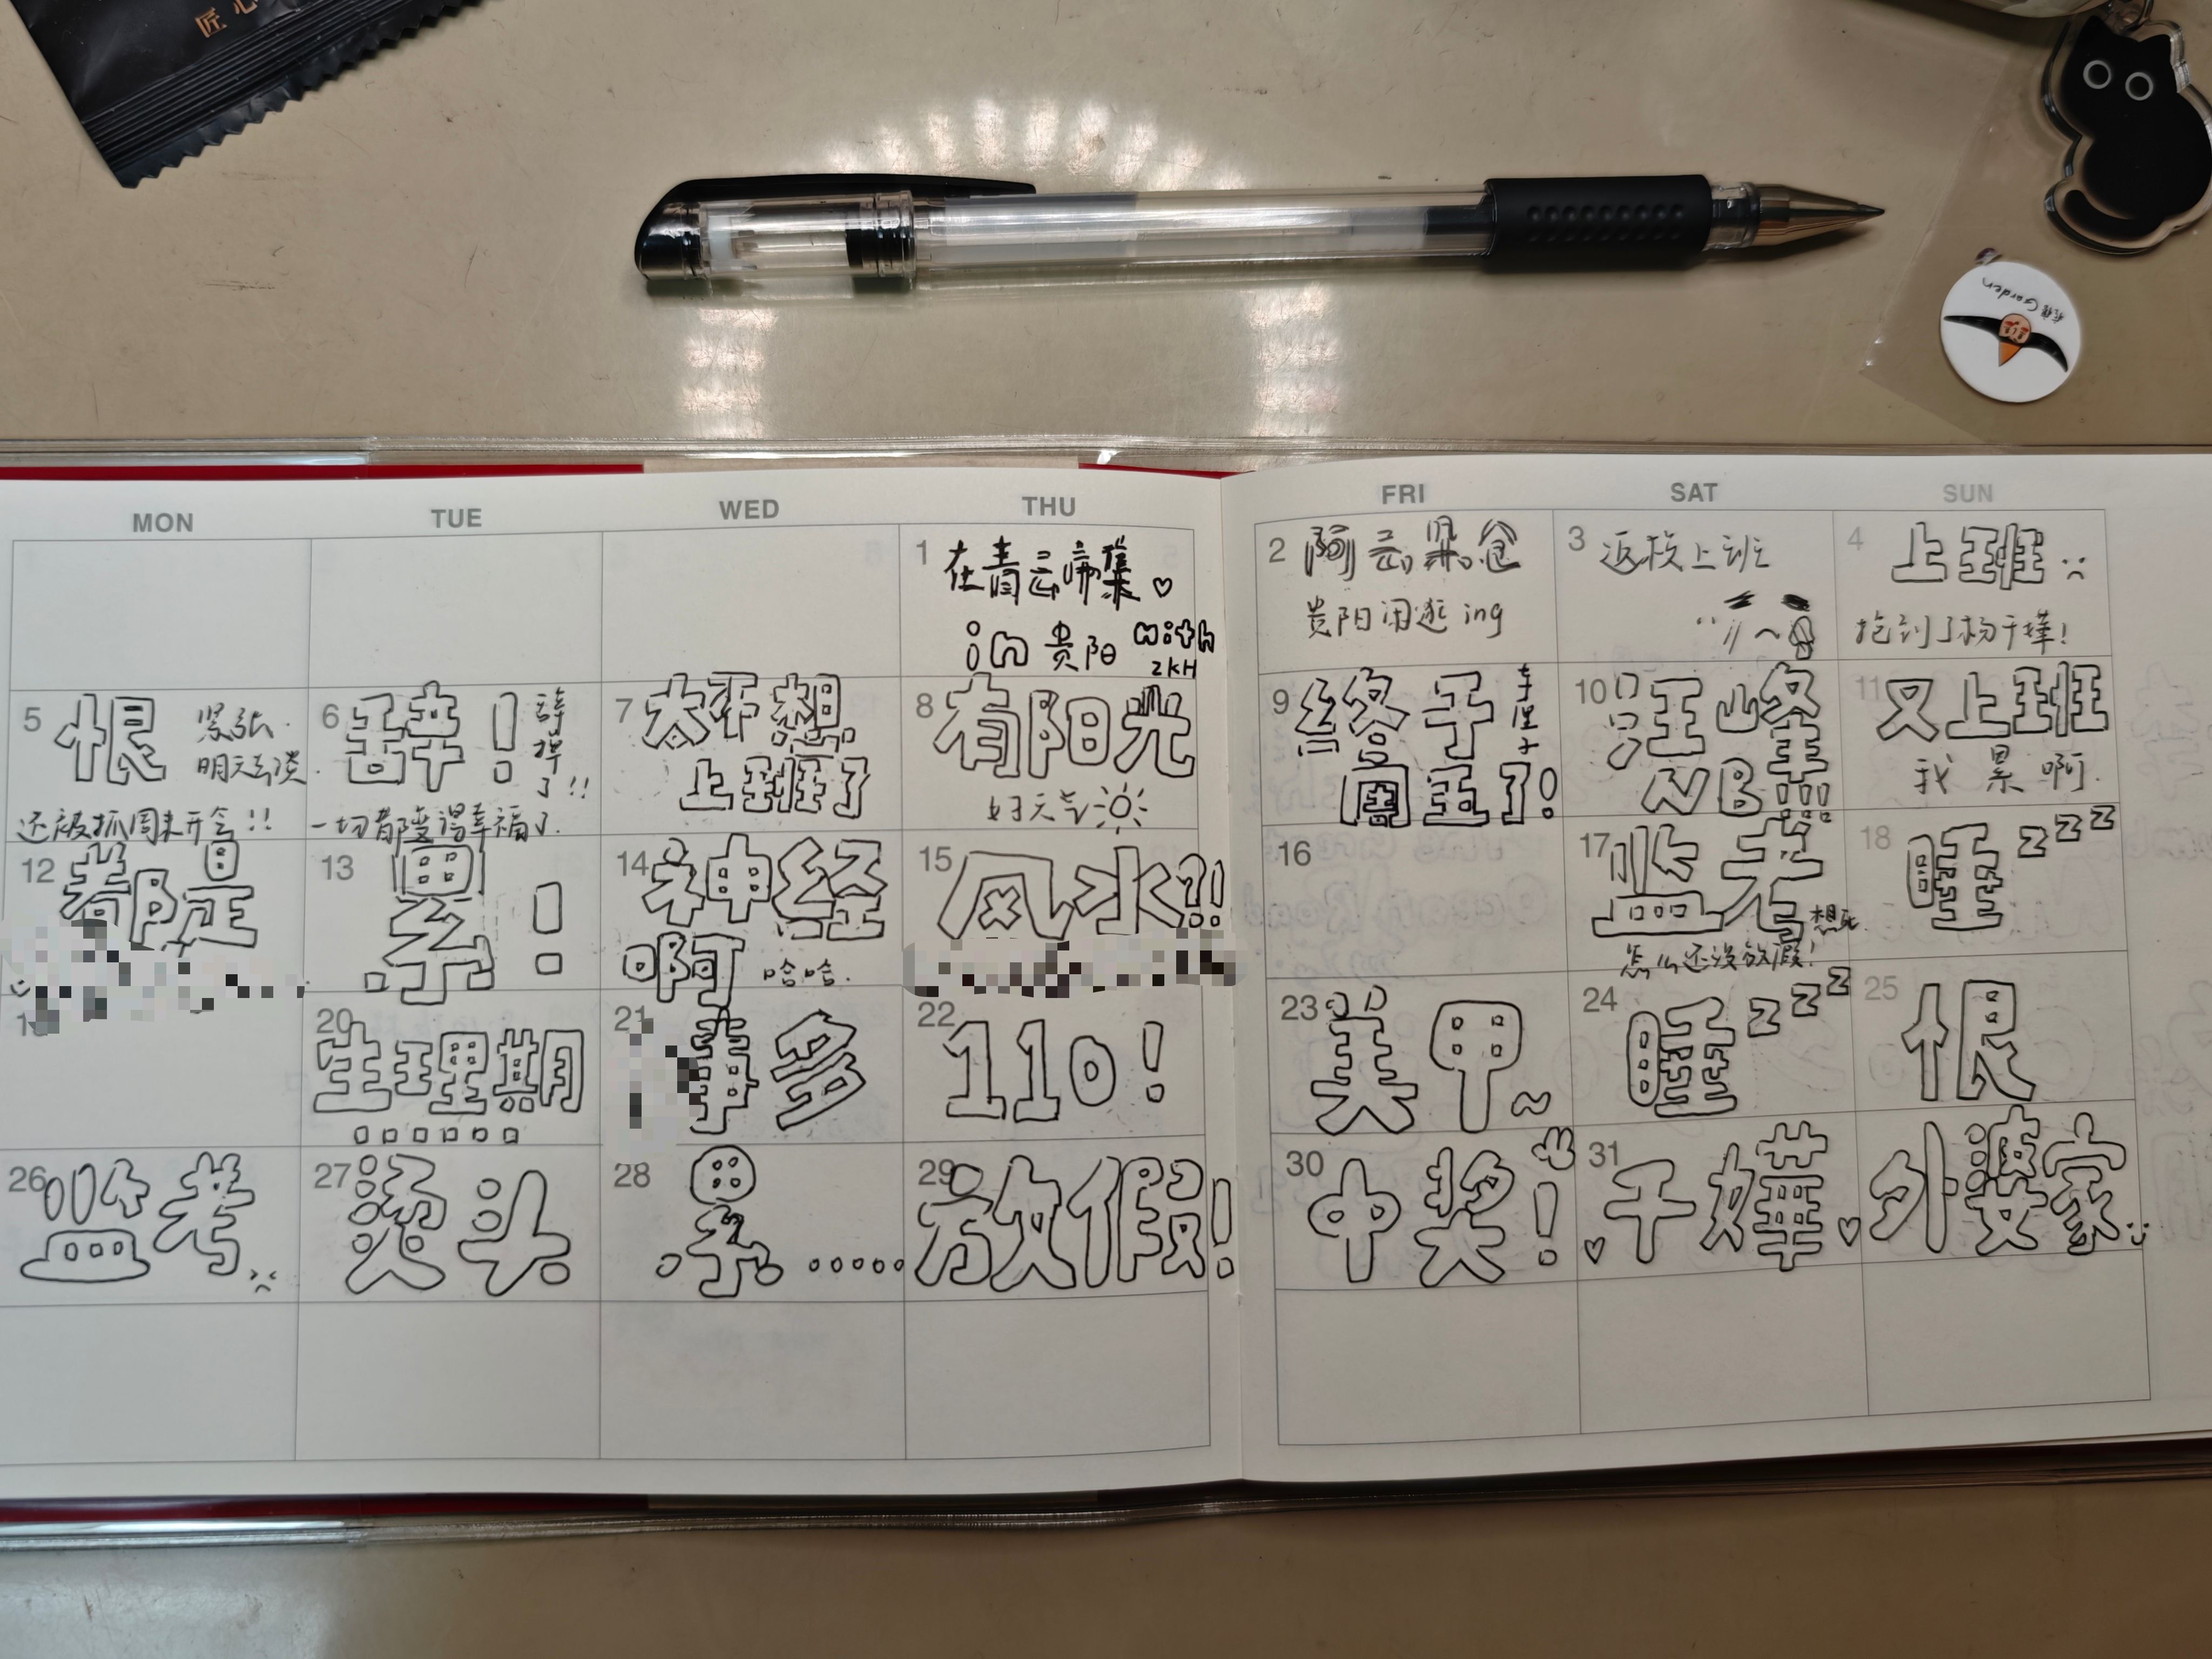 匠心
Garden
MON TUE WED THU FRI SAT SUN
1 在青云市集♡
in 贵阳 with
ZKH
2 阿云朵仓
贵阳闲逛 ing
3 返校上班
4 上班
抢到了杨千嬅!
5 恨 紧张.
明天云淡.
还被抓周末开会!!
6 辞! 辞
掉
了!!
一切都变得幸福了.
7 太不想
上班了
8 有阳光
好天气
9 终于
周五了!
10 汪峰
NB
11 又上班
我累啊.
12 都是
13 累!
14 神经
啊 哈哈.
15 风水?!
16
17 监考
想死.
怎么还没放假!
18 睡 zzz
20 生理期
......
21 事多
22 110!
23 美甲~
24 睡 zzz
25 恨
26 监考
27 烫头
28 累.....
29 放假!
30 中奖!
31 ♡千嬅♡
外婆家